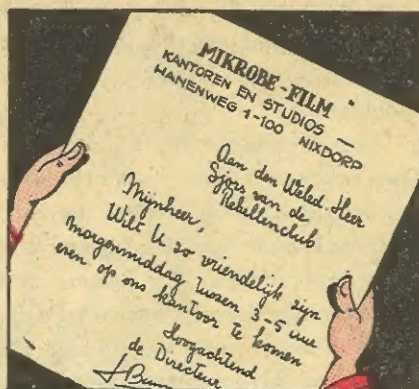 MIKROBE-FILM
KANTOREN EN STUDIOS —
HANENWEG 1-100 NIXDORP
Aan den Weled. Heer
Sjors van de
Rebellenclub
Mijnheer,
Wilt U zo vriendelijk zijn
morgenmiddag tussen 3-5 uur
even op ons kantoor te komen
Hoogachtend
de Directeur